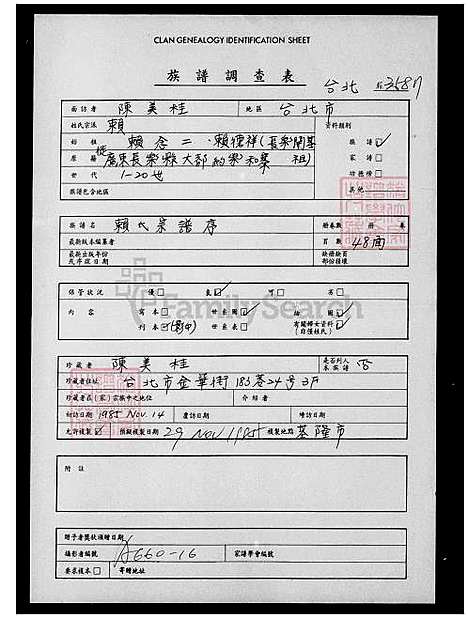 CLAN GENEALOGY IDENTIFICATION SHEET
族譜調查表
台北
面訪者 陳美桂 地區 台北市
姓氏宗派 賴 資料類別
始祖 賴念二、賴德祥(長樂開基祖) 族譜
原籍 廣東長樂縣大都約寮和集 家譜
世代 1-20世 功德榜
族譜包含地區 其他
族譜名 賴氏宗譜序 冊卷數 冊 卷
最新版本編纂者 頁數 48面
最新出版年份及序跋日期 缺冊缺頁部份種壞
保管狀況 優 良 可 劣
內容 寫本 世系圖 插圖
刊本(影印) 世系表 有關婦女資料(自傳姓氏)
FamilySearch
珍藏者 陳美桂 是否列入本族譜 否
珍藏者住址 台北市金華街183巷24号3F
珍藏者在(家)宗族中之地位 介紹者
初訪日期 1985 NOV. 14 覆訪日期 增訪日期
允許複製 預擬複製日期 29 NOV 1985 複製地點 基隆市
附註
贈予者獎狀頒贈日期
攝影者編號 A660-16 家譜學會編號
要求複本 寄贈地址